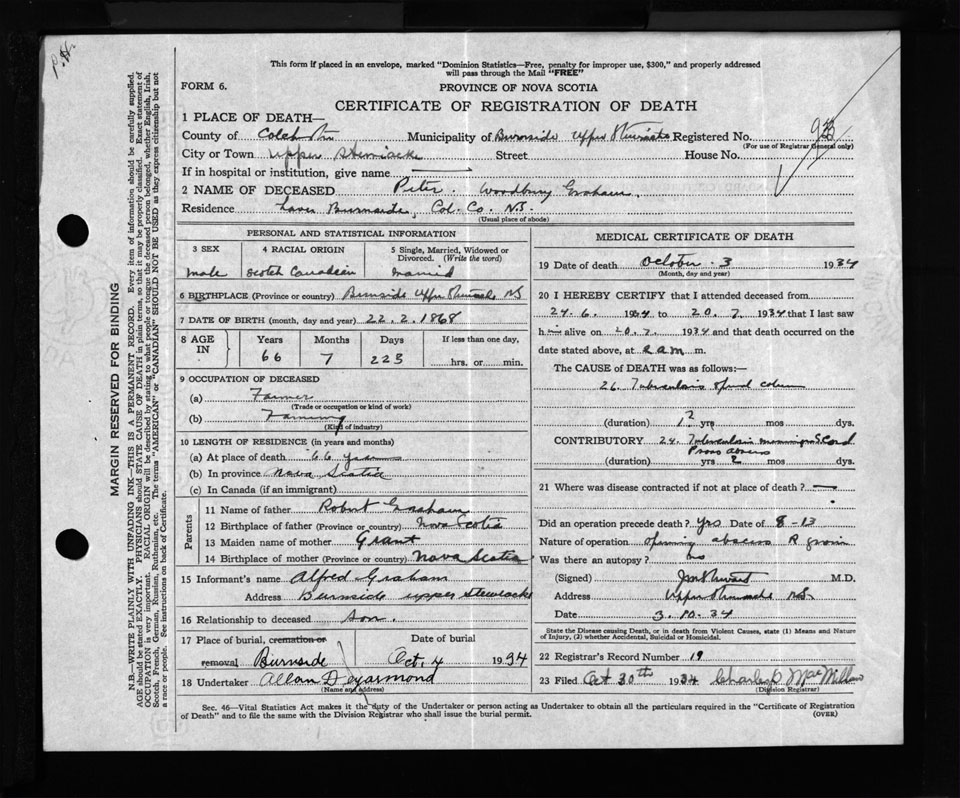 This form if placed in an envelope, marked "Dominion Statistics—Free, penalty for improper use, $300," and properly addressed
will pass through the Mail "FREE"
FORM 6.
PROVINCE OF NOVA SCOTIA
CERTIFICATE OF REGISTRATION OF DEATH
MARGIN RESERVED FOR BINDING
N.B.—WRITE PLAINLY WITH UNFADING INK—THIS IS A PERMANENT RECORD. Every item of information should be carefully supplied.
AGE should be stated EXACTLY. PHYSICIANS should STATE CAUSE OF DEATH in plain terms, so that it may be properly classified. Exact statement of
OCCUPATION is very important. RACIAL ORIGIN will be described by stating to what people or tongue the deceased person belonged, whether English, Irish,
Scotch, French, German, Russian, Ruthenian, etc. The terms "AMERICAN" or "CANADIAN" SHOULD NOT BE USED as they express citizenship but not
a race or people. See instructions on back of Certificate.
1 PLACE OF DEATH—
County of Colchester Municipality of Burnside Upper Stewiacke Registered No.
(For use of Registrar General only)
City or Town Upper Stewiacke Street House No.
If in hospital or institution, give name
2 NAME OF DECEASED Peter Woodbury Graham
Residence Burnside, Col. Co. N.S.
(Usual place of abode)
PERSONAL AND STATISTICAL INFORMATION
3 SEX
male
4 RACIAL ORIGIN
Scotch Canadian
5 Single, Married, Widowed or
Divorced. (Write the word)
Married
6 BIRTHPLACE (Province or country) Burnside Upper Stewiacke NS
7 DATE OF BIRTH (month, day and year) 22.2.1868
8 AGE IN
Years Months Days If less than one day,
66 7 hrs. or min.
9 OCCUPATION OF DECEASED
(a) Farmer
(Trade or occupation or kind of work)
(b) Farming
(Kind of industry)
10 LENGTH OF RESIDENCE (in years and months)
(a) At place of death 66 years
(b) In province Nova Scotia
(c) In Canada (if an immigrant)
Parents
11 Name of father Robert Graham
12 Birthplace of father (Province or country) Nova Scotia
13 Maiden name of mother Grant
14 Birthplace of mother (Province or country) Nova Scotia
15 Informant's name Alfred Graham
Address Burnside upper Stewiacke
16 Relationship to deceased Son.
17 Place of burial, cremation or
removal Burnside
Date of burial
Oct. 4 1934
18 Undertaker Allan Deyarmond
(Name and address)
MEDICAL CERTIFICATE OF DEATH
19 Date of death October 3 1934
(Month, day and year)
20 I HEREBY CERTIFY that I attended deceased from
24.6. 1934 to 20.7. 1934 that I last saw
him alive on 20.7. 1934 and that death occurred on the
date stated above, at m.
The CAUSE OF DEATH was as follows:—
26. Tuberculosis spinal column
(duration) yrs mos dys.
CONTRIBUTORY 24. Tuberculosis meninges S. Cord
Psoas abscess
(duration) yrs 2 mos dys.
21 Where was disease contracted if not at place of death?
Did an operation precede death? yes Date of 8-13
Nature of operation Opening abscess R groin
Was there an autopsy? no
(Signed) M.D.
Address Upper Stewiacke NS
Date 3.10.34
State the Disease causing Death, or in death from Violent Causes, state (1) Means and Nature
of Injury, (2) whether Accidental, Suicidal or Homicidal.
22 Registrar's Record Number 19
23 Filed Oct 30th 1934 Charles D MacMillan
(Division Registrar)
Sec. 46—Vital Statistics Act makes it the duty of the Undertaker or person acting as Undertaker to obtain all the particulars required in the "Certificate of Registration
of Death" and to file the same with the Division Registrar who shall issue the burial permit.
(OVER)